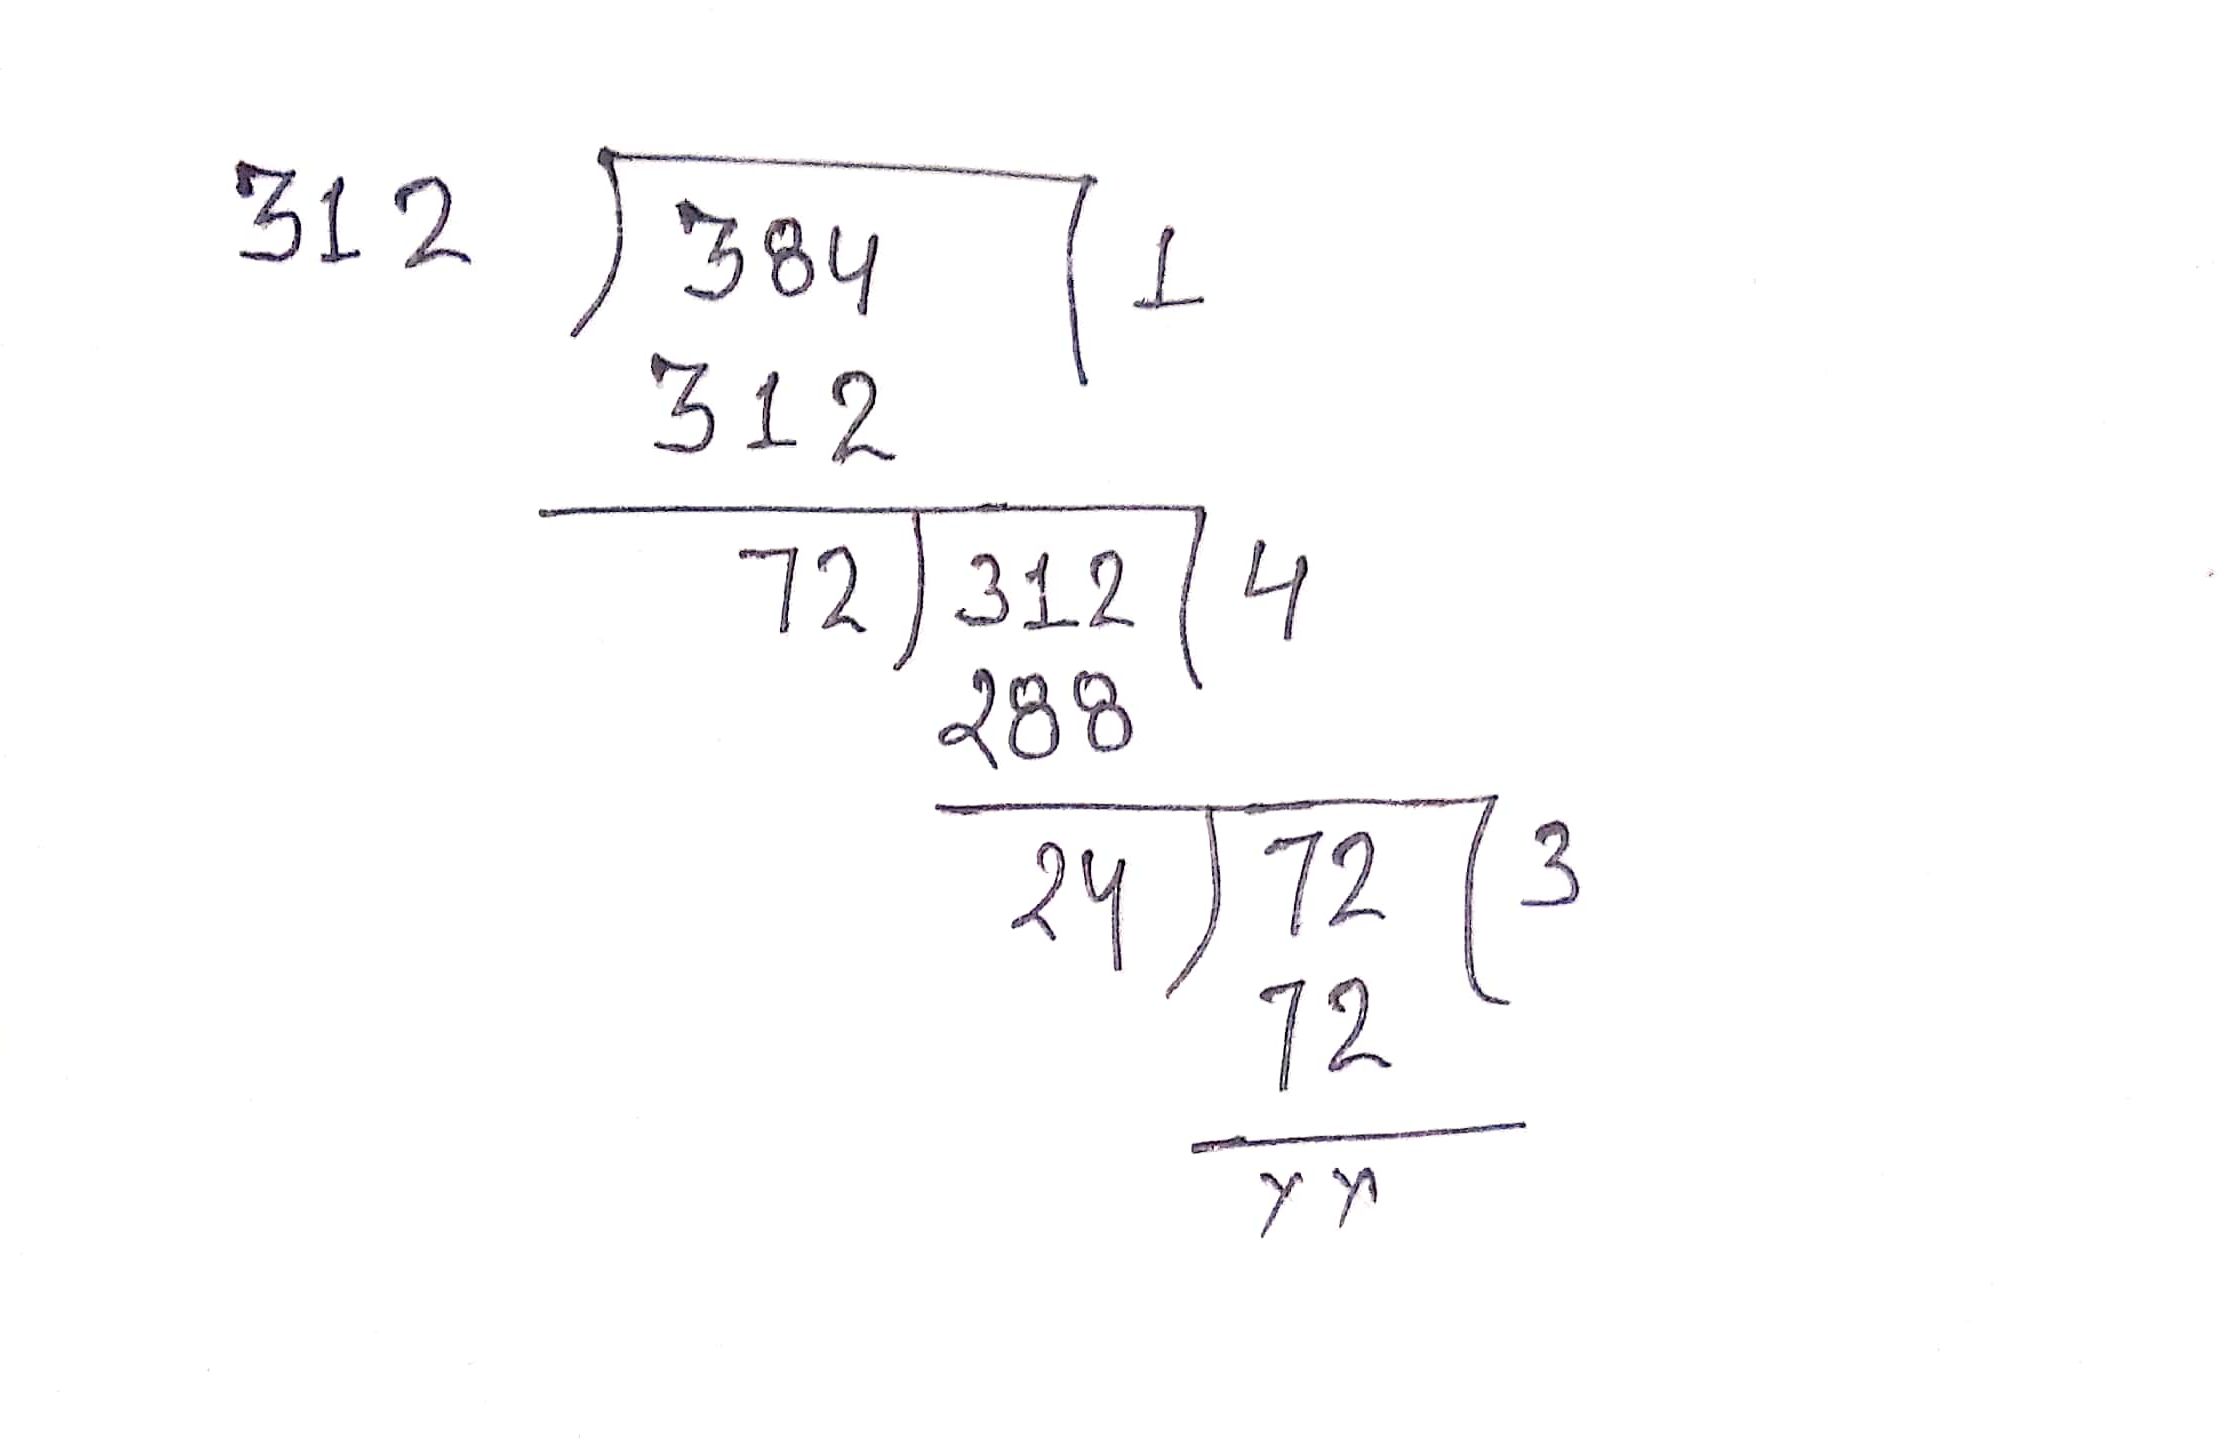 312 ) 384 ( 1
312
72 ) 312 ( 4
288
24 ) 72 ( 3
72
x x